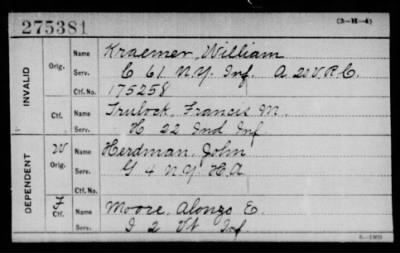 275381
(3-H-4)
INVALID
Orig.
Name Kraemer, William
Serv. C 61 N.Y. Inf. A 20 V.R.C.
Ctf. No. 175258
Ctf.
Name Trulock, Francis M.
Serv. H 22 Ind Inf
DEPENDENT
W
Orig.
Name Herdman, John
Serv. G 4 N.Y. H.A
Ctf.
Name Moore, Alonzo E.
Serv. I 2 Vt Inf